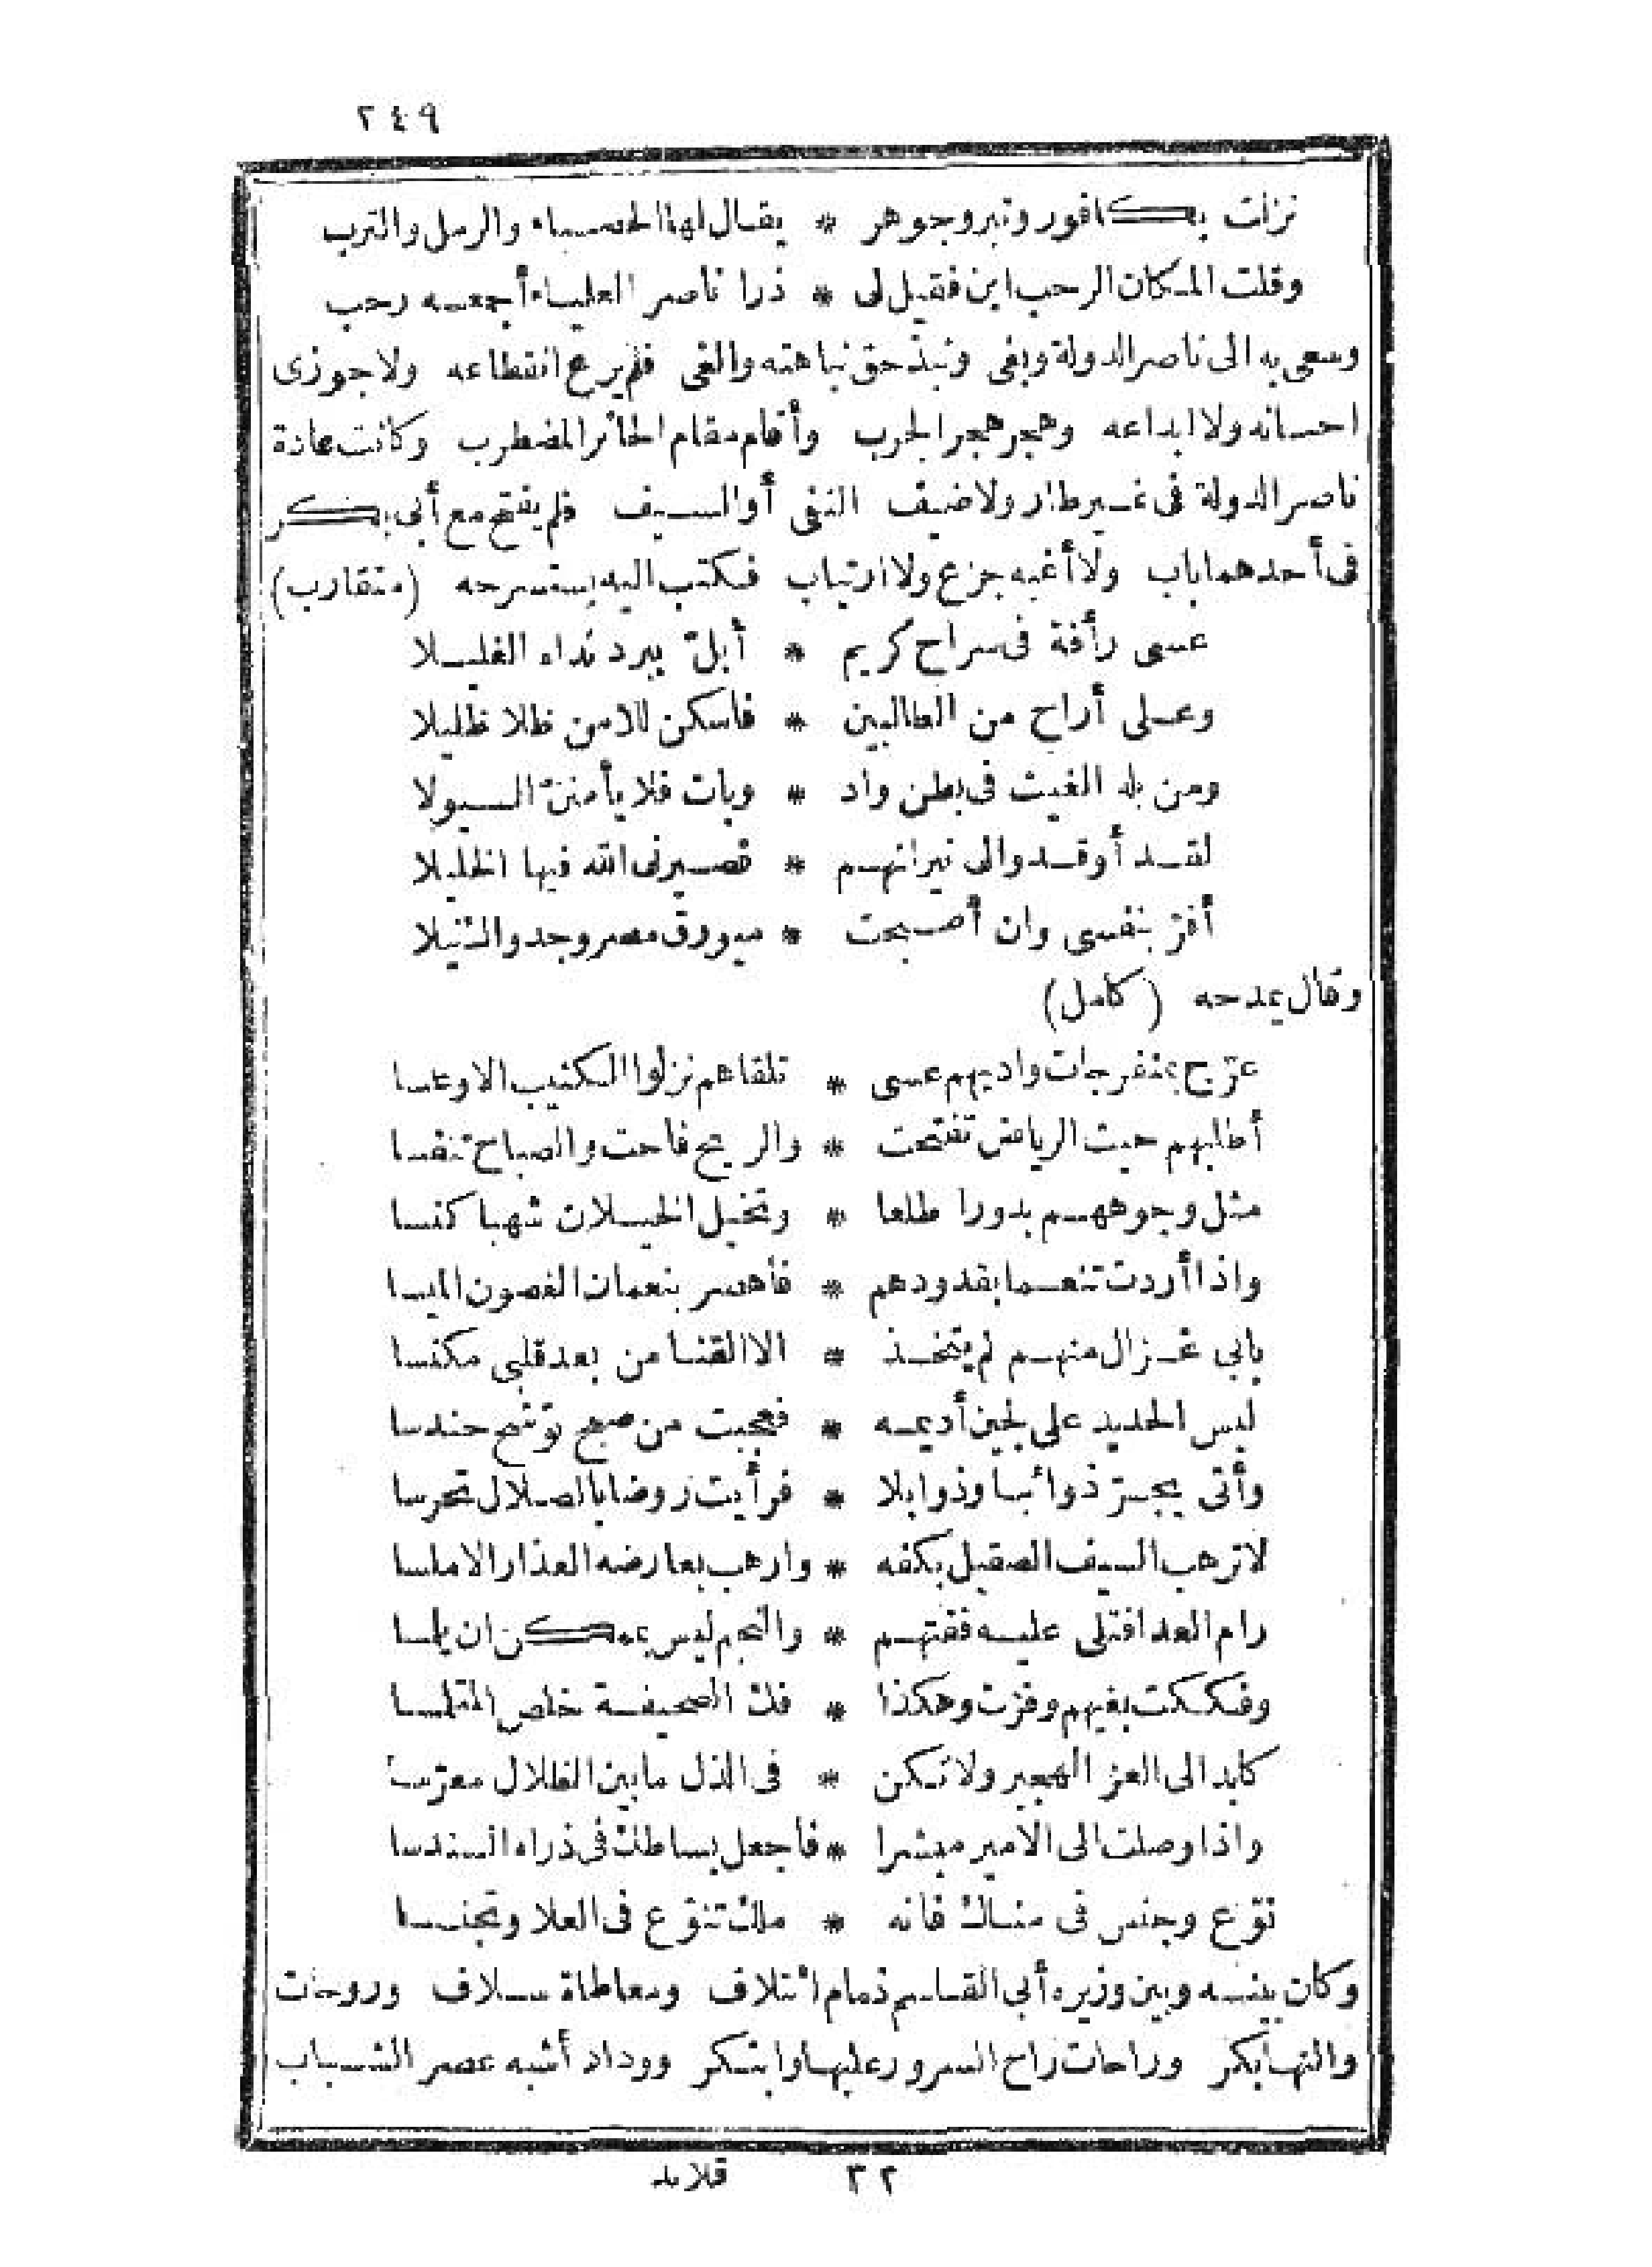 ٢٤٩
نزلت بكافور وتبر وجوهر * يقال لها الحصباء والرمل والترب
وقلت المكان الرحب اين فقيل لى * ذرا ناصر العلياء أجمعه رحب
وسعى به الى ناصر الدولة وبغى ونبذ حق نباهته والغى فلم يرع انقطاعه ولا جوزى
احسانه ولا ابداعه وهجر هجر الجرب وأقام مقام الحائر المضطرب وكانت عادة
ناصر الدولة فى غير طار ولا ضيف النفى أو السيف فلم يفتح مع أبى بكر
فى أحدهما باب ولا أغبه جزع ولا ارتياب فكتب اليه يستسرحه (متقارب)
عسى رأفة فى سراح كريم * أبلّ ببرد نداه الغليلا
وعلى أراح من الطالبين * فاسكن للامن ظلا ظليلا
ومن بله الغيث فى بطن واد * وبات فلا يأمننّ السيولا
لقد أوقدوا لى نيرانهم * فصيرنى الله فيها الخليلا
أفرّ بنفسى وان أصبحت * ميورق مصر وجدواك نيلا
وقال يمدحه (كامل)
عرّج بمنفرجات واديهم عسى * تلقاهم نزلوا الكثيب الاوعسا
أطلبهم حيث الرياض تفتحت * والريح فاحت والصباح تنفسا
مثل وجوههم بدورا طلعا * وتخيل الخيلان شهبا كنسا
واذا أردت تنعما بقدودهم * فأهصر بنعمان الغصون الميسا
بابى غزال منهم لم يتخذ * الا القنا من بعد قلبى مكنسا
لبس الحديد على لجين أديمه * فعجبت من صبح توشح حندسا
وأتى يجرّ ذوائبا وذوابلا * فرأيت روضا بالصلال تحرسا
لا ترهب السيف الصقيل بكفه * وارهب بعارضه العذار الاملسا
رام العدا فتلى عليه ففتهم * والنجم ليس بممكن ان يلمسا
وفككت بغيهم وفزت وهكذا * فك الصحيفة خلص المتلمسا
كابد الى العز الهجير ولا تكن * فى الذل ما بين الظلال معرّسا
واذا وصلت الى الامير مبشرا * فأجعل بساطك فى ذراه السندسا
نوّع وجنس فى مناك فانه * ملك تنوّع فى العلا وتجنسا
وكان بينه وبين وزيره أبى القاسم ذمام ائتلاف ومعاطاة سلاف وروحات
والتها بكر وراحات راح السرور عليها وابتكر ووداد أشبه عصر الشباب
٣٢ قلايد